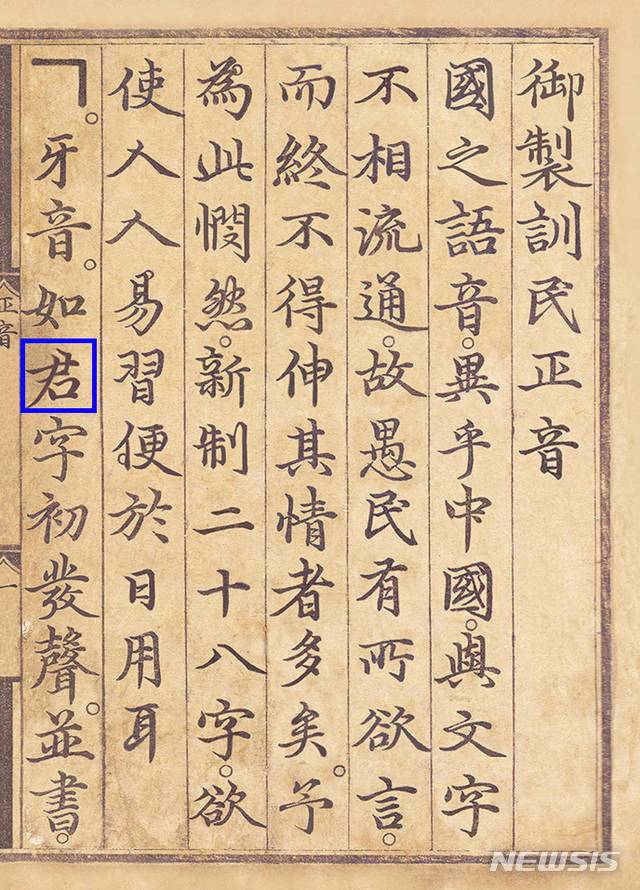 御製訓民正音
國之語音。異乎中國。與文字
不相流通。故愚民有所欲言。
而終不得伸其情者多矣。予
為此憫然。新制二十八字。欲
使人人易習便於日用耳
ㄱ。牙音。如君字初發聲。並書。
正音
一
NEWSIS